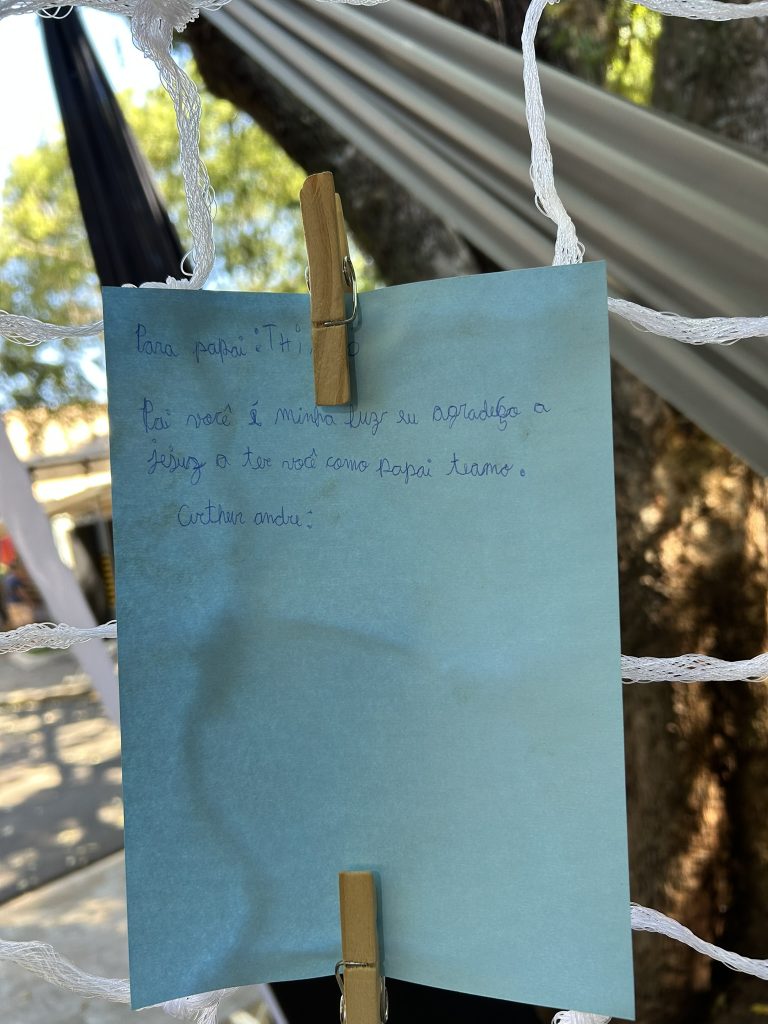 Para papai:
Pai você é minha luz eu agradeço a
jesuz a ter você como papai teamo.
Arthur andre: